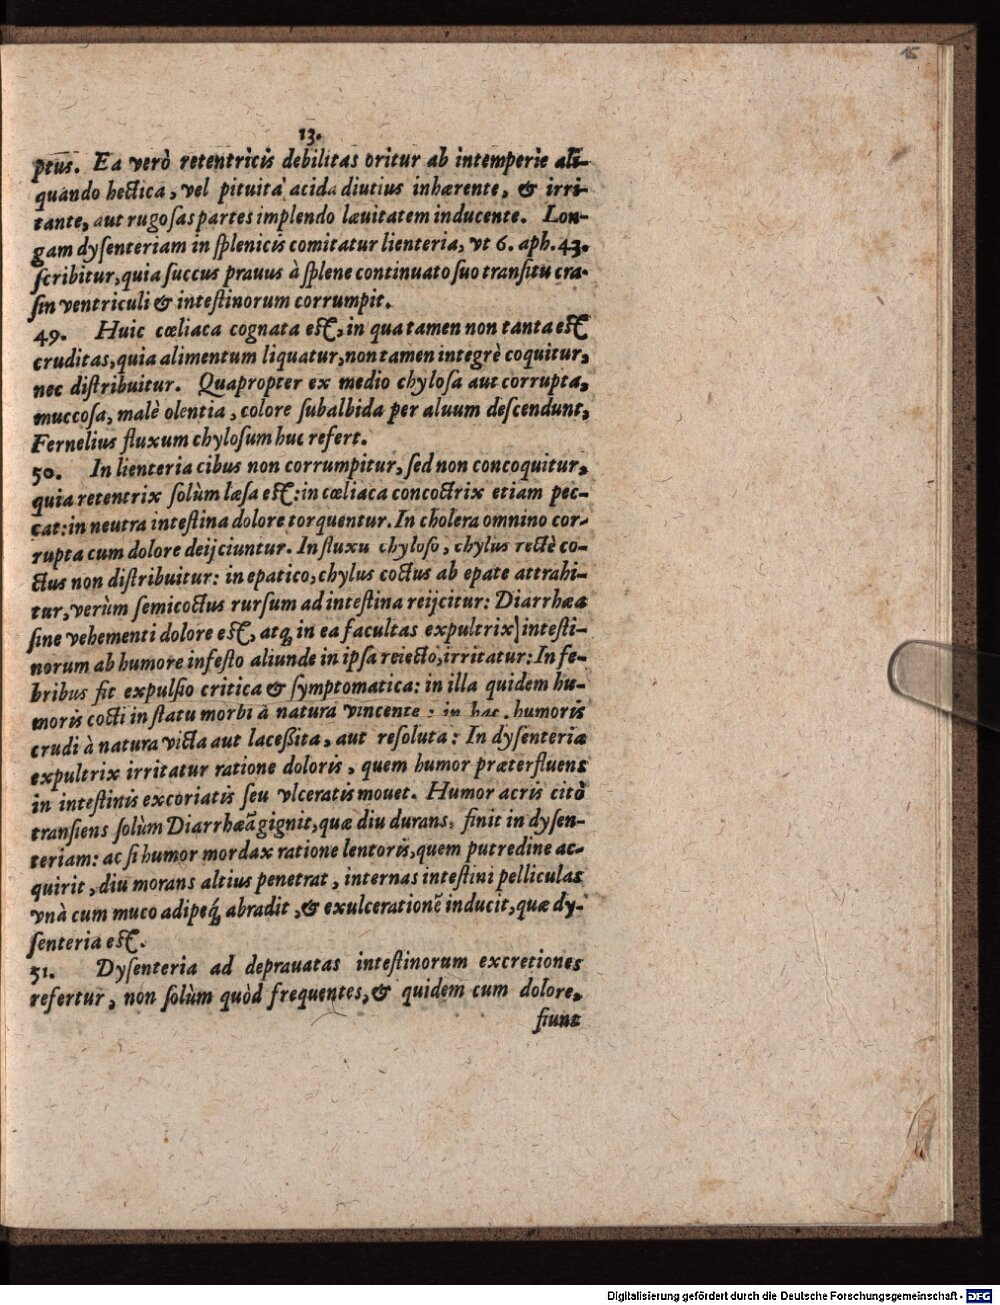 15
13.
ptus. Ea verò retentricis debilitas oritur ab intemperie ali-
quando hectica, vel pituita acida diutius inhærente, & irri-
tante, aut rugosas partes implendo læuitatem inducente. Lon-
gam dysenteriam in splenicis comitatur lienteria, vt 6. aph. 43.
scribitur, quia succus prauus à splene continuato suo transitu cra-
sin ventriculi & intestinorum corrumpit.
49. Huic cœliaca cognata est, in qua tamen non tanta est
cruditas, quia alimentum liquatur, non tamen integrè coquitur,
nec distribuitur. Quapropter ex medio chylosa aut corrupta,
muccosa, malè olentia, colore subalbida per aluum descendunt,
Fernelius fluxum chylosum huc refert.
50. In lienteria cibus non corrumpitur, sed non concoquitur,
quia retentrix solùm læsa est: in cœliaca concoctrix etiam pec-
cat: in neutra intestina dolore torquentur. In cholera omnino cor-
rupta cum dolore deijciuntur. In fluxu chyloso, chylus rectè co-
ctus non distribuitur: in epatico, chylus coctus ab epate attrahi-
tur, verùm semicoctus rursum ad intestina reijcitur: Diarrhæa
sine vehementi dolore est, atq; in ea facultas expultrix intesti-
norum ab humore infesto aliunde in ipsa reiecto, irritatur: In fe-
bribus fit expulsio critica & symptomatica: in illa quidem hu-
moris cocti in statu morbi à natura vincente: in hac, humoris
crudi à natura victa aut lacessita, aut resoluta: In dysenteria
expultrix irritatur ratione doloris, quem humor præterfluens
in intestinis excoriatis seu vlceratis mouet. Humor acris citò
transiens solùm Diarrhæã gignit, quæ diu durans, finit in dysen-
teriam: ac si humor mordax ratione lentoris, quem putredine ac-
quirit, diu morans altius penetrat, internas intestini pelliculas
vnà cum muco adipeq́; abradit, & exulcerationẽ inducit, quæ dy-
senteria est.
51. Dysenteria ad deprauatas intestinorum excretiones
refertur, non solùm quòd frequentes, & quidem cum dolore,
fiunt
Digitalisierung gefördert durch die Deutsche Forschungsgemeinschaft - DFG